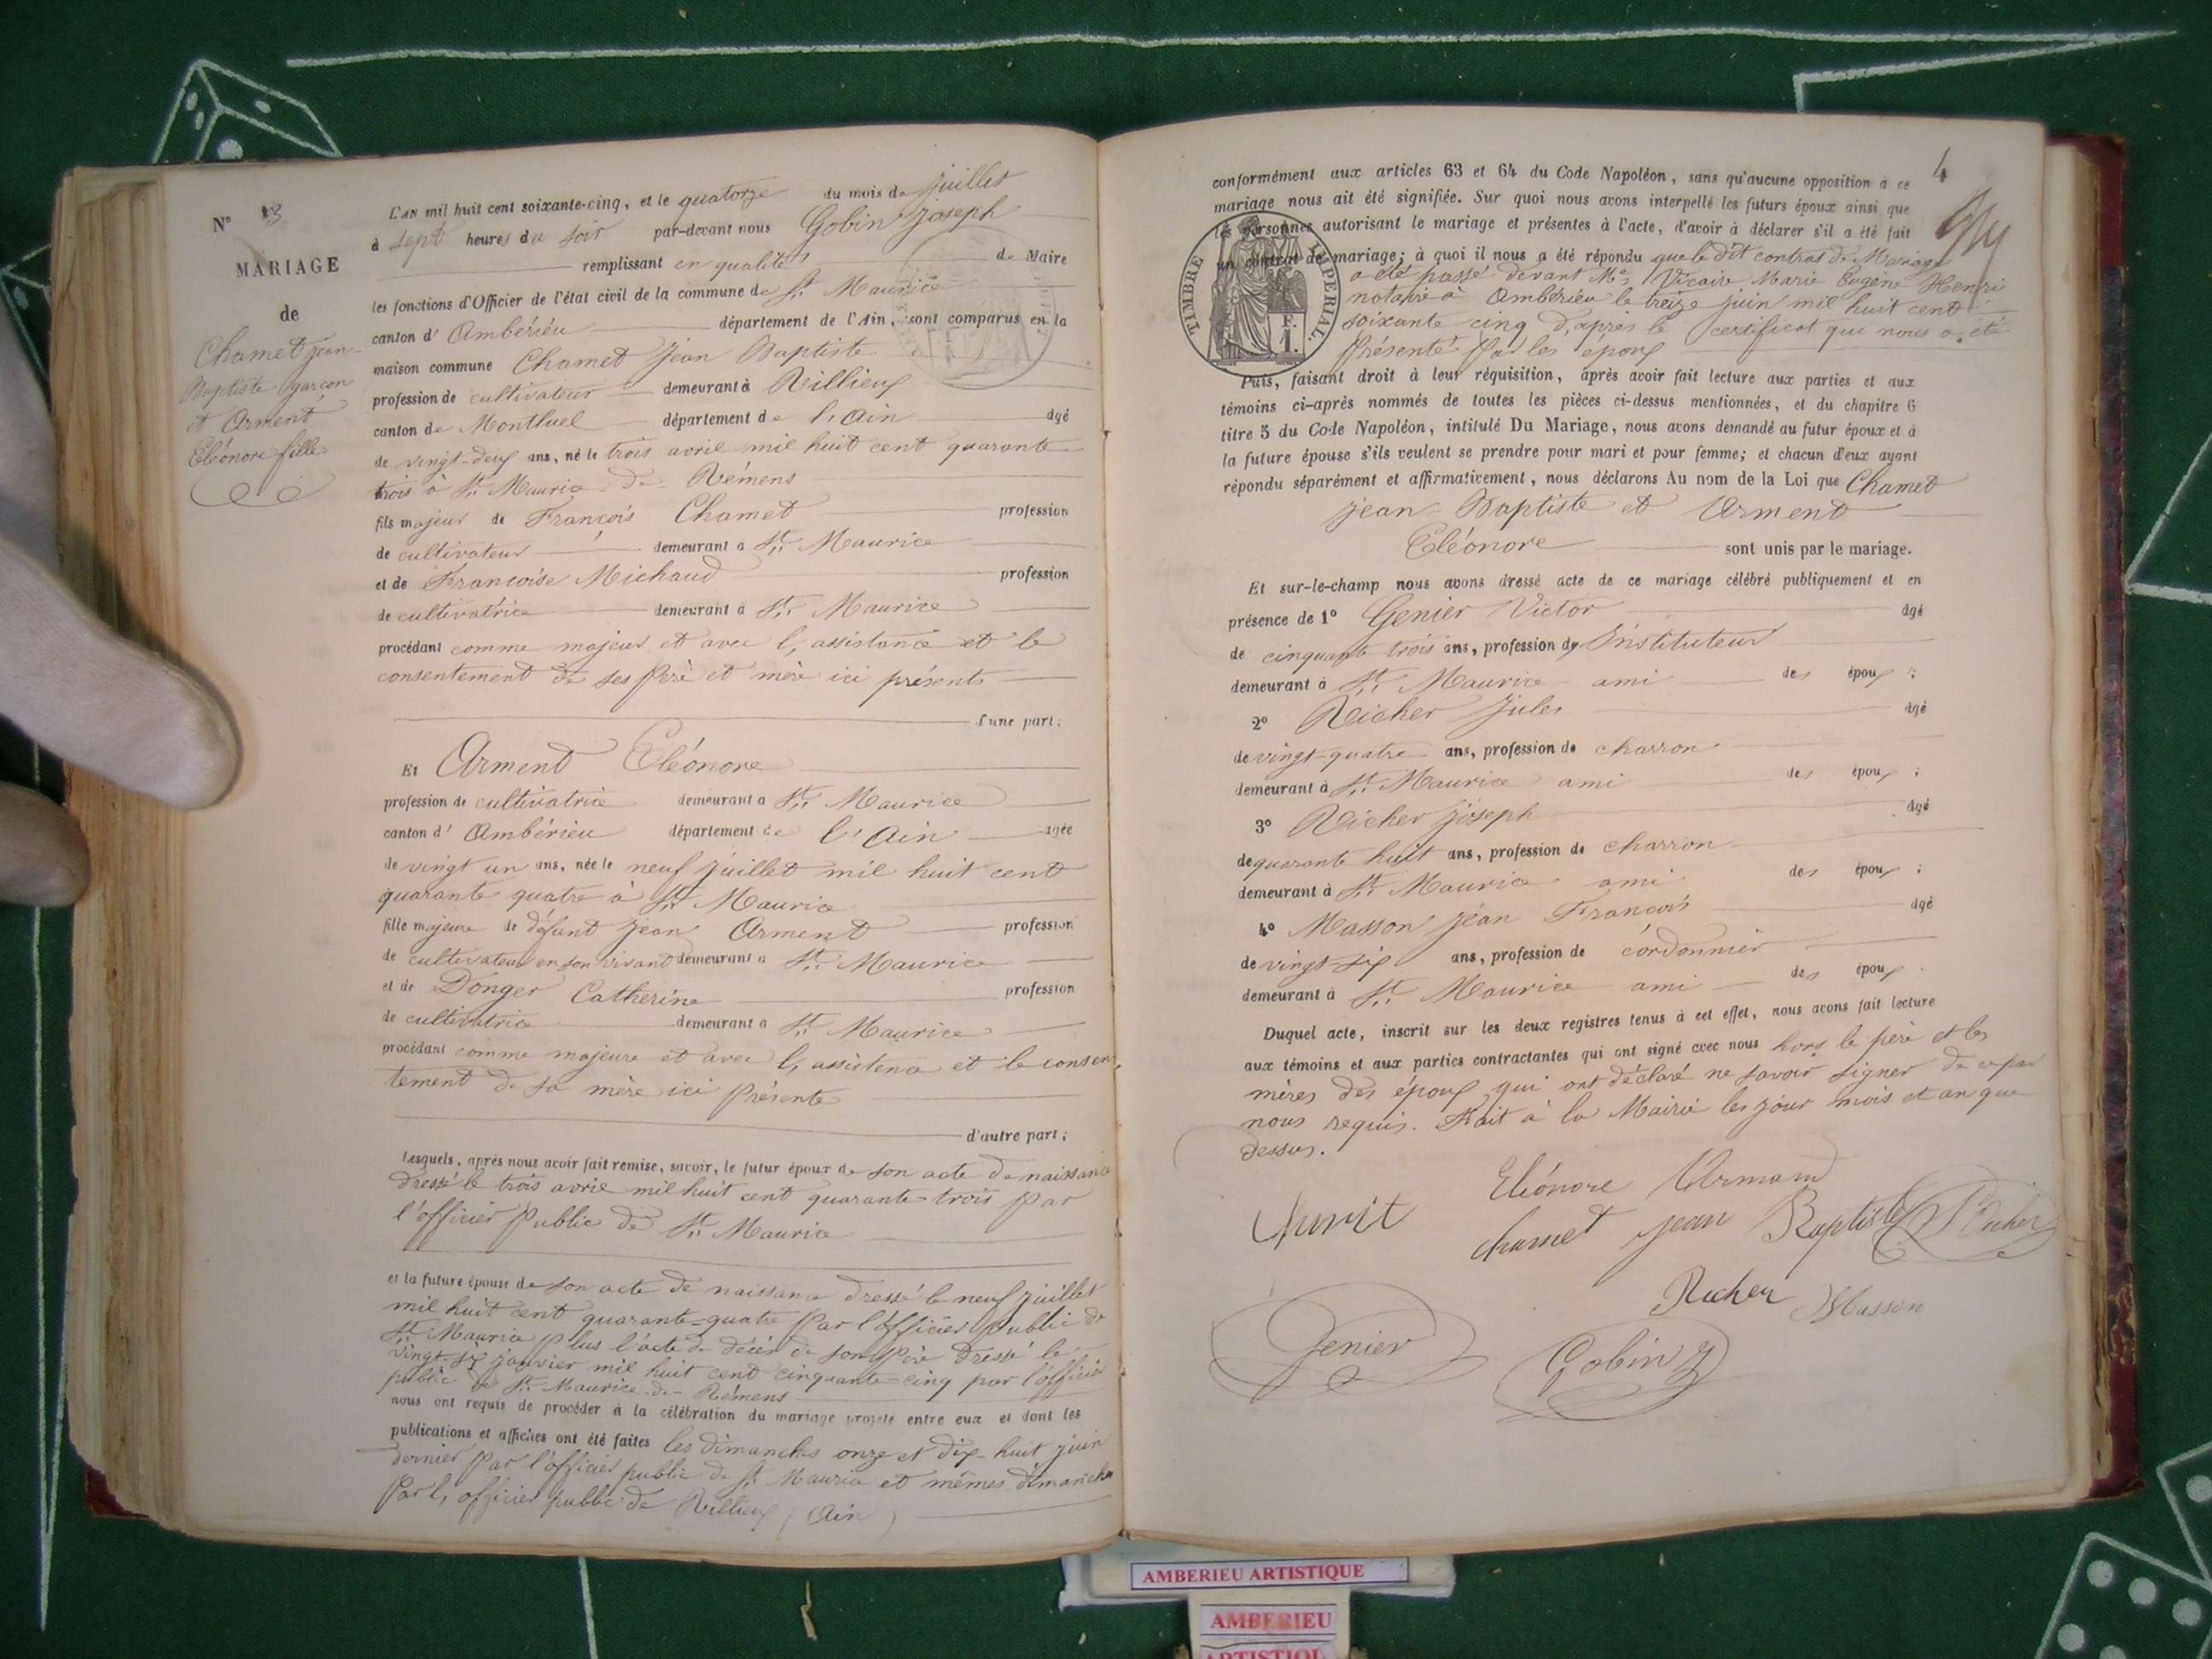 N° 13
MARIAGE
de
Chamet jean-
Baptiste garçon
et Arment
Eléonore fille
L'AN mil huit cent soixante-cinq, et le quatorze du mois de juillet
à sept heures du soir par-devant nous Gobin joseph
remplissant en qualité de Maire
les fonctions d'Officier de l'état civil de la commune de St. Maurice
canton d' Ambérieu département de l'Ain, sont comparus en la
maison commune Chamet jean Baptiste
profession de cultivateur demeurant à Rillieux
canton de Montluel département de l'Ain âgé
de vingt-deux ans, né le trois avril mil huit cent quarante
trois à St. Maurice-de-Rémens
fils majeur de François Chamet profession
de cultivateur demeurant à St. Maurice
et de Françoise Michaud profession
de cultivatrice demeurant à St. Maurice
procédant comme majeur et avec l'assistance et le
consentement de ses père et mère ici présents
d'une part;
Et Arment Eléonore
profession de cultivatrice demeurant à St. Maurice
canton d' Ambérieu département de l'Ain agée
de vingt un ans, née le neuf juillet mil huit cent
quarante quatre à St. Maurice
fille majeure de défunt jean Arment profession
de cultivateur en son vivant demeurant à St. Maurice
et de Donger Catherine profession
de cultivatrice demeurant à St. Maurice
procédant comme majeure et avec l'assistance et le consen
tement de sa mère ici présente
d'autre part;
Lesquels, après nous avoir fait remise, savoir, le futur époux de son acte de naissance
dressé le trois avril mil huit cent quarante-trois par
l'officier public de St. Maurice
et la future épouse de son acte de naissance dressé le neuf juillet
mil huit cent quarante-quatre par l'officier public de
St. Maurice plus l'acte de décès de son père dressé le
vingt-six janvier mil huit cent cinquante-cinq par l'officier
public de St. Maurice-de-Rémens
nous ont requis de procéder à la célébration du mariage projeté entre eux et dont les
publications et affiches ont été faites les dimanches onze et dix-huit juin
dernier par l'officier public de St. Maurice et mêmes dimanches
par l'officier public de Rillieux (Ain)
4
conformément aux articles 63 et 64 du Code Napoléon, sans qu'aucune opposition à ce
mariage nous ait été signifiée. Sur quoi nous avons interpellé les futurs époux ainsi que
les personnes autorisant le mariage et présentes à l'acte, d'avoir à déclarer s'il a été fait
un contrat de mariage; à quoi il nous a été répondu que le dit contrat de Mariage
a été passé devant Me. Vicaire Marie Eugène Henri
notaire à Ambérieu le treize juin mil huit cent
soixante cinq d'après le certificat qui nous a été
présenté par les époux
TIMBRE IMPERIAL
1 F.
Puis, faisant droit à leur réquisition, après avoir fait lecture aux parties et aux
témoins ci-après nommés de toutes les pièces ci-dessus mentionnées, et du chapitre 6
titre 5 du Code Napoléon, intitulé Du Mariage, nous avons demandé au futur époux et à
la future épouse s'ils veulent se prendre pour mari et pour femme; et chacun d'eux ayant
répondu séparément et affirmativement, nous déclarons Au nom de la Loi que Chamet
jean Baptiste et Arment
Eléonore sont unis par le mariage.
Et sur-le-champ nous avons dressé acte de ce mariage célébré publiquement et en
présence de 1° Genier Victor âgé
de cinquante trois ans, profession de Instituteur
demeurant à St. Maurice ami des époux;
2° Richer jules âgé
de vingt-quatre ans, profession de charron
demeurant à St. Maurice ami des époux;
3° Richer joseph âgé
de quarante huit ans, profession de charron
demeurant à St. Maurice ami des époux;
4° Masson jean François âgé
de vingt-six ans, profession de cordonnier
demeurant à St. Maurice ami des époux.
Duquel acte, inscrit sur les deux registres tenus à cet effet, nous avons fait lecture
aux témoins et aux parties contractantes qui ont signé avec nous hors le père et les
mères des époux qui ont déclaré ne savoir signer de ce par
nous requis. Fait à la Mairie les jour mois et an que
dessus.
Eléonore Armand
chamet jean Baptiste Richer
Richer Masson
Genier Gobin J
AMBERIEU ARTISTIQUE
AMBERIEU
ARTISTIQUE